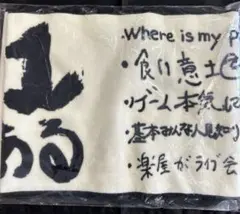 .Where is my p
・食い意地
・ゲーム本気に
・基本みんな人見知り
・楽屋がライブ会
ある